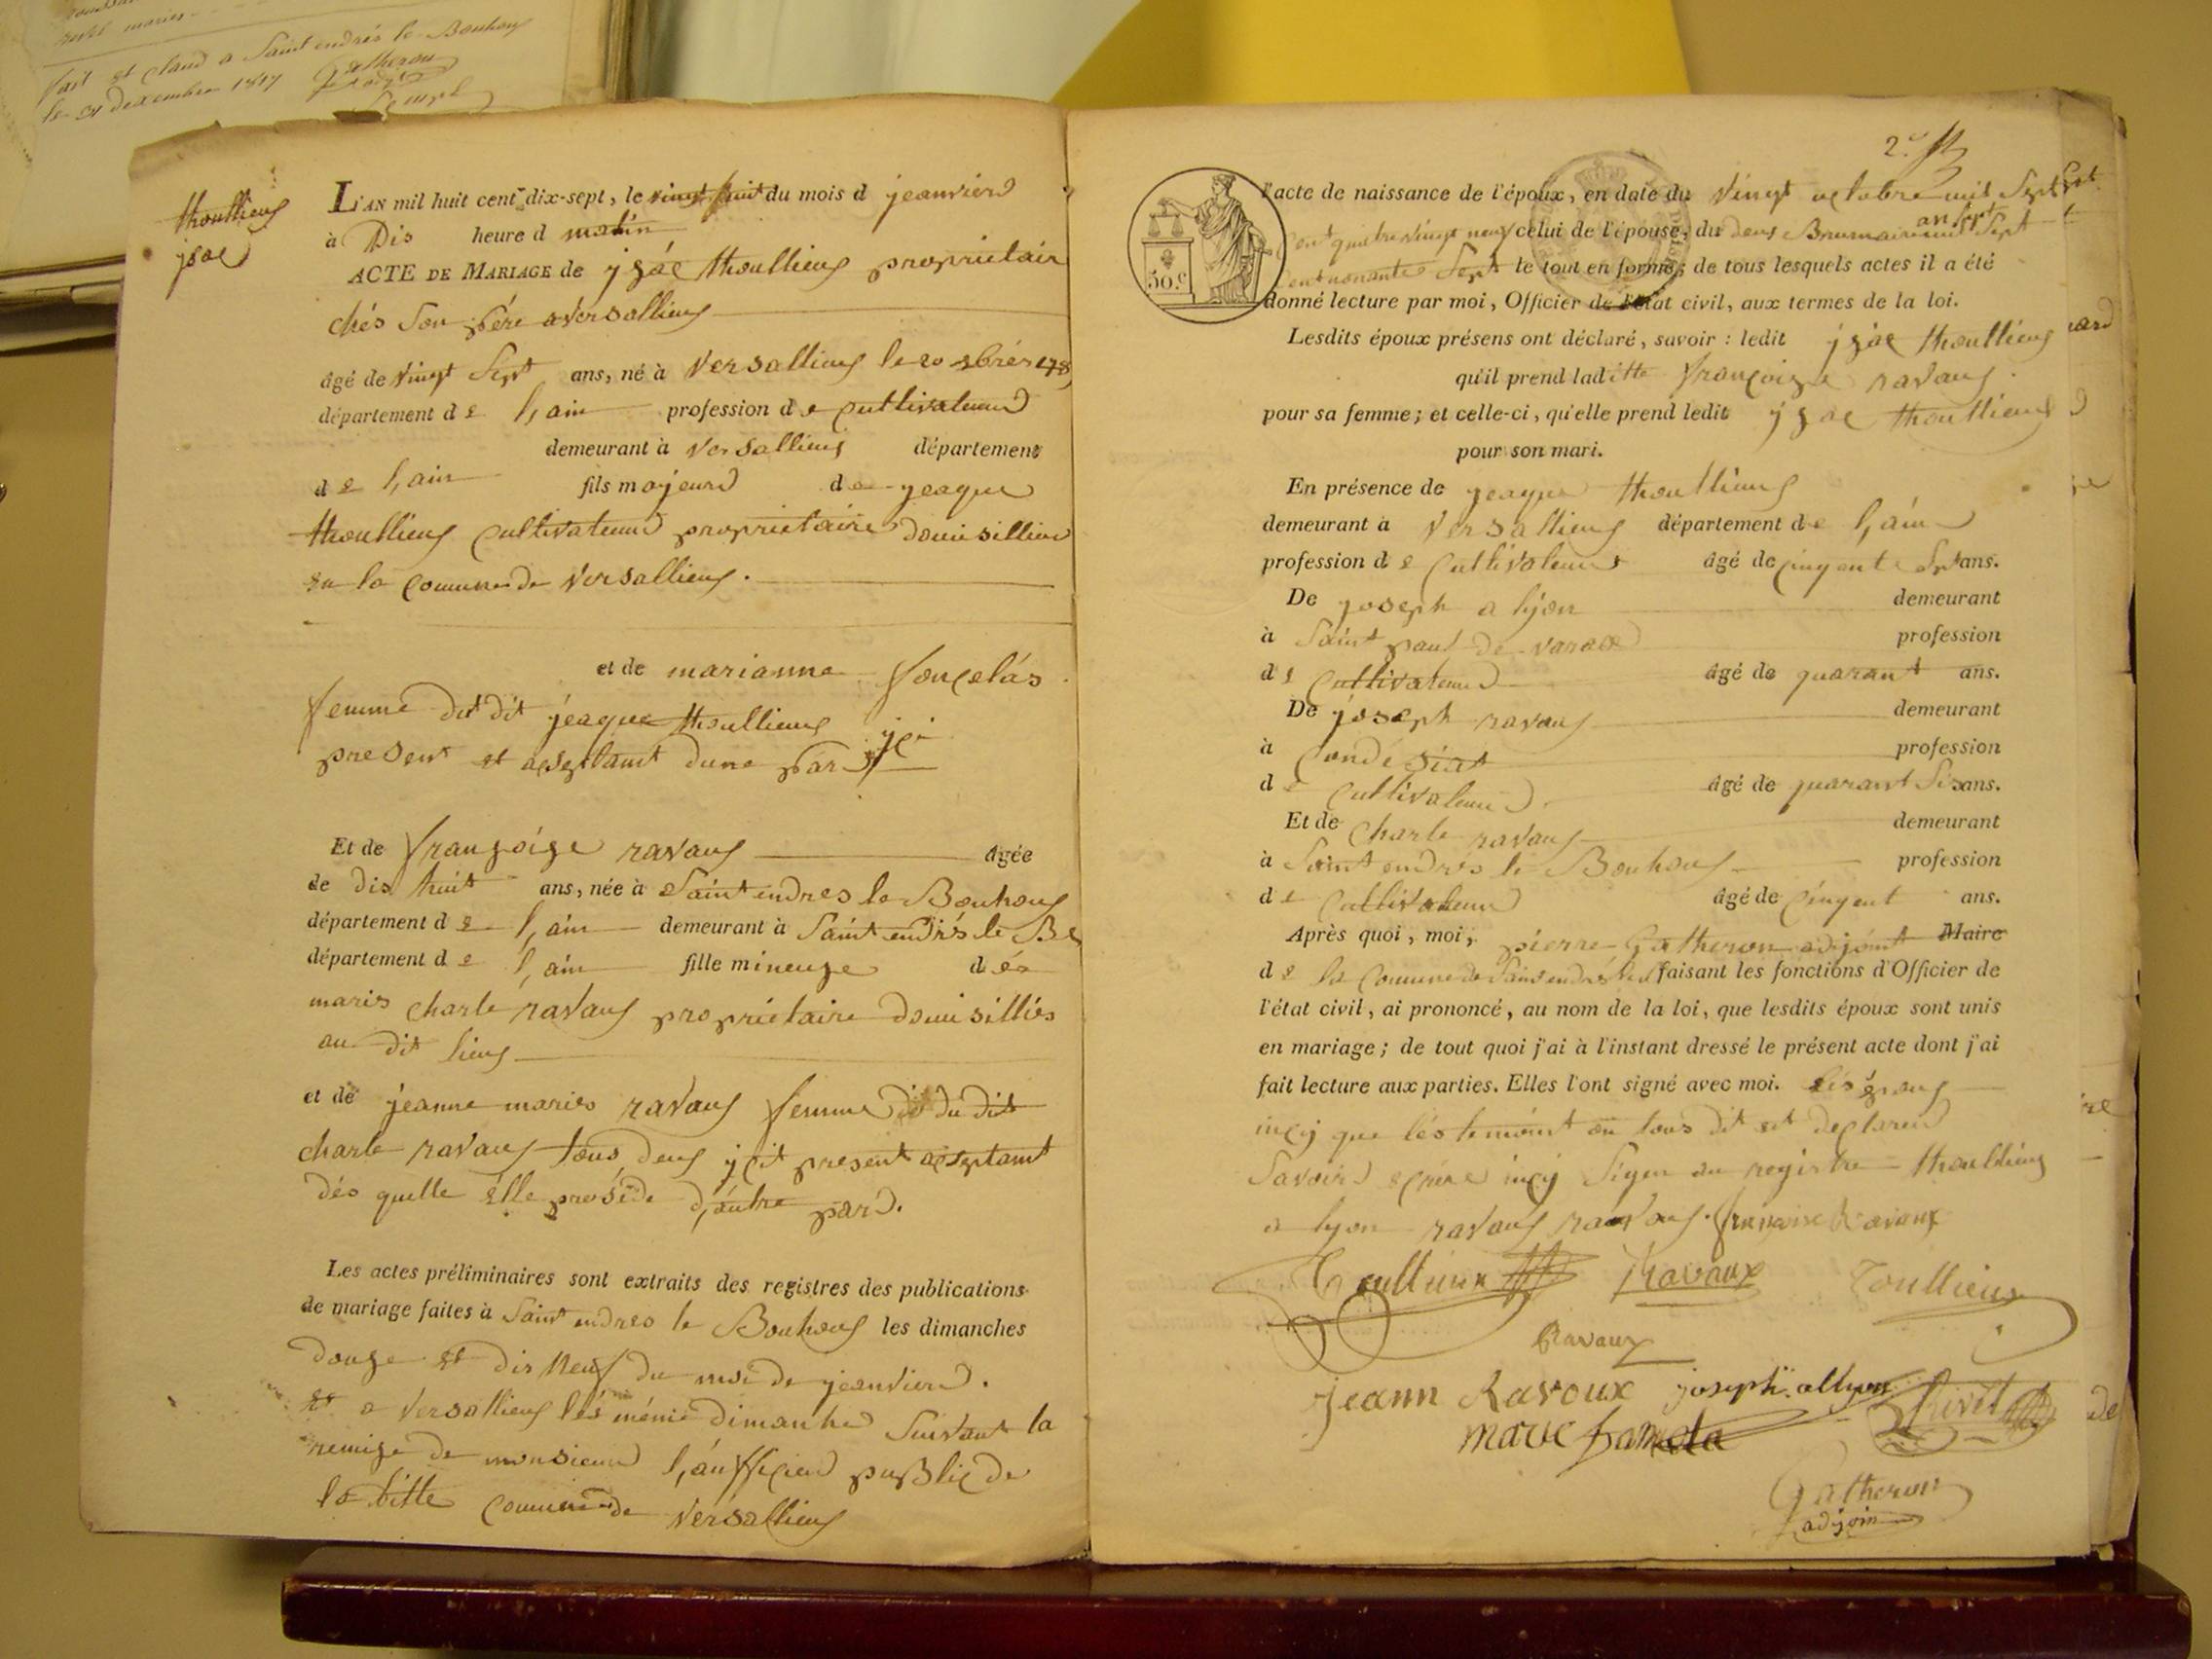 fait et claud a Saint endrés le Bouhouy
le 31 decembre 1817
Gatheron
thoullieuy
jsac
L'AN mil huit cent dix-sept, le vingt huit du mois d jeanvierd
à Dis heure d matin
ACTE DE MARIAGE de ysáe thoullieuy proprietair
chés Son pére aversallieuy
âgé de vingt Sept ans, né à versallieuy le 20
département de l,ain profession de cultivateurd
demeurant à versallieuy département
de l,ain fils majeurd de jeaque
thoullieuy cultivateurd proprietaire domisillierd
en la commune de versallieuy.
et de marianne
femme du dit jeaque thoullieuy yci
present et acseptamt dune pard
Et de françoize ravauy âgée
de dis huit ans, née à Saint endres le Bouhouy
département de l,ain demeurant à Saint endrés le B
département de l,ain fille mineuze dés
maris charle ravauy proprietaire domisilliés
au dit lieuy
et de jeanne maries ravauy femme du dit
charle ravauy tous deuy ycit present acseptamt
dés quelle élle proséde d,áutre pard.
Les actes préliminaires sont extraits des registres des publications
de mariage faites à Saint endres le Bouhouy les dimanches
douze et dis neuf du moi de jeanvierd.
et a versallieuy lés méme dimanche Suivant la
remize de monsieurd l,áufficierd publicde
la ditte commune de versallieuy
2.e
50.c
l'acte de naissance de l'époux, en date du vingt octobre mil Sept
Cent quatre vingt neuf celui de l'épouse, du deus Brumaire an sept mil Sept
Cent nonante Sept le tout en forme; de tous lesquels actes il a été
donné lecture par moi, Officier de l'état civil, aux termes de la loi.
Lesdits époux présens ont déclaré, savoir : ledit ysáe thoullieuy
qu'il prend laditte françoize ravauy.
pour sa femme; et celle-ci, qu'elle prend ledit ysae thoullieuy
pour son mari.
En présence de jeaque thoullieuy
demeurant à versallieuy département de l,ain
profession de cultivateurd âgé de cinquante Sept ans.
De joseph a lyon demeurant
à Saint paul de varax profession
de cultivateurd âgé de quarant ans.
De joseph ravauy demeurant
à condésiat profession
de cultivateurd âgé de quarant Sis ans.
Et de charle ravauy demeurant
à Saint endres le Bouhouy profession
de cultivateurd âgé de cinquent ans.
Après quoi, moi, pierre Gatheron adijoint Maire
de la commune de Saint endrés le B faisant les fonctions d'Officier de
l'état civil, ai prononcé, au nom de la loi, que lesdits époux sont unis
en mariage; de tout quoi j'ai à l'instant dressé le présent acte dont j'ai
fait lecture aux parties. Elles l'ont signé avec moi. lés épouy
incy que lés temoint on tous dit et declared
Savoird ecrire incy Signe au registre thoullieuy
a lyon ravauy ravauy. françoise Ravaux
Toullieux Ravaux Toullieux
Ravaux
jeann Ravoux joseph allyon Rivet
marie
Gatheron
adjoin